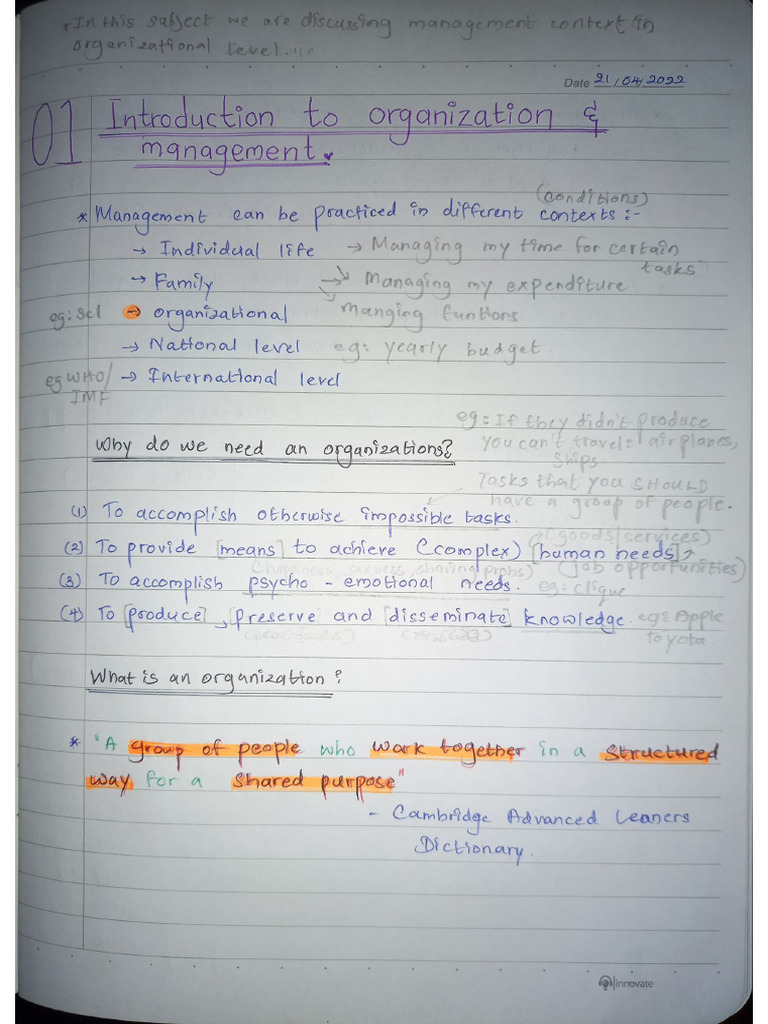 * In this subject we are discussing management context in
organizational level...
Date 21/04/2022
01 Introduction to organization &
management.
(conditions)
* Management can be practiced in different contexts :-
→ Individual life → Managing my time for certain
tasks
→ Family → Managing my expenditure
eg: Scl → organizational manging funtions
→ National level eg: yearly budget
eg WHO/ → International level
IMF
eg: If they didn't produce
Why do we need an organizations? you can't travel: airplanes,
ships
Tasks that you SHOULD
have a group of people.
(1) To accomplish otherwise impossible tasks.
(goods/services)
(2) To provide [means] to achieve (complex) [human needs]
(job opportunities)
(3) To accomplish psycho-emotional needs. eg: clique
(4) To [produce], [preserve and [disseminate] knowledge. eg: Apple
toyota
What is an organization?
* "A group of people who work together in a structured
way for a shared purpose"
- Cambridge Advanced Leaners
Dictionary.
innovate